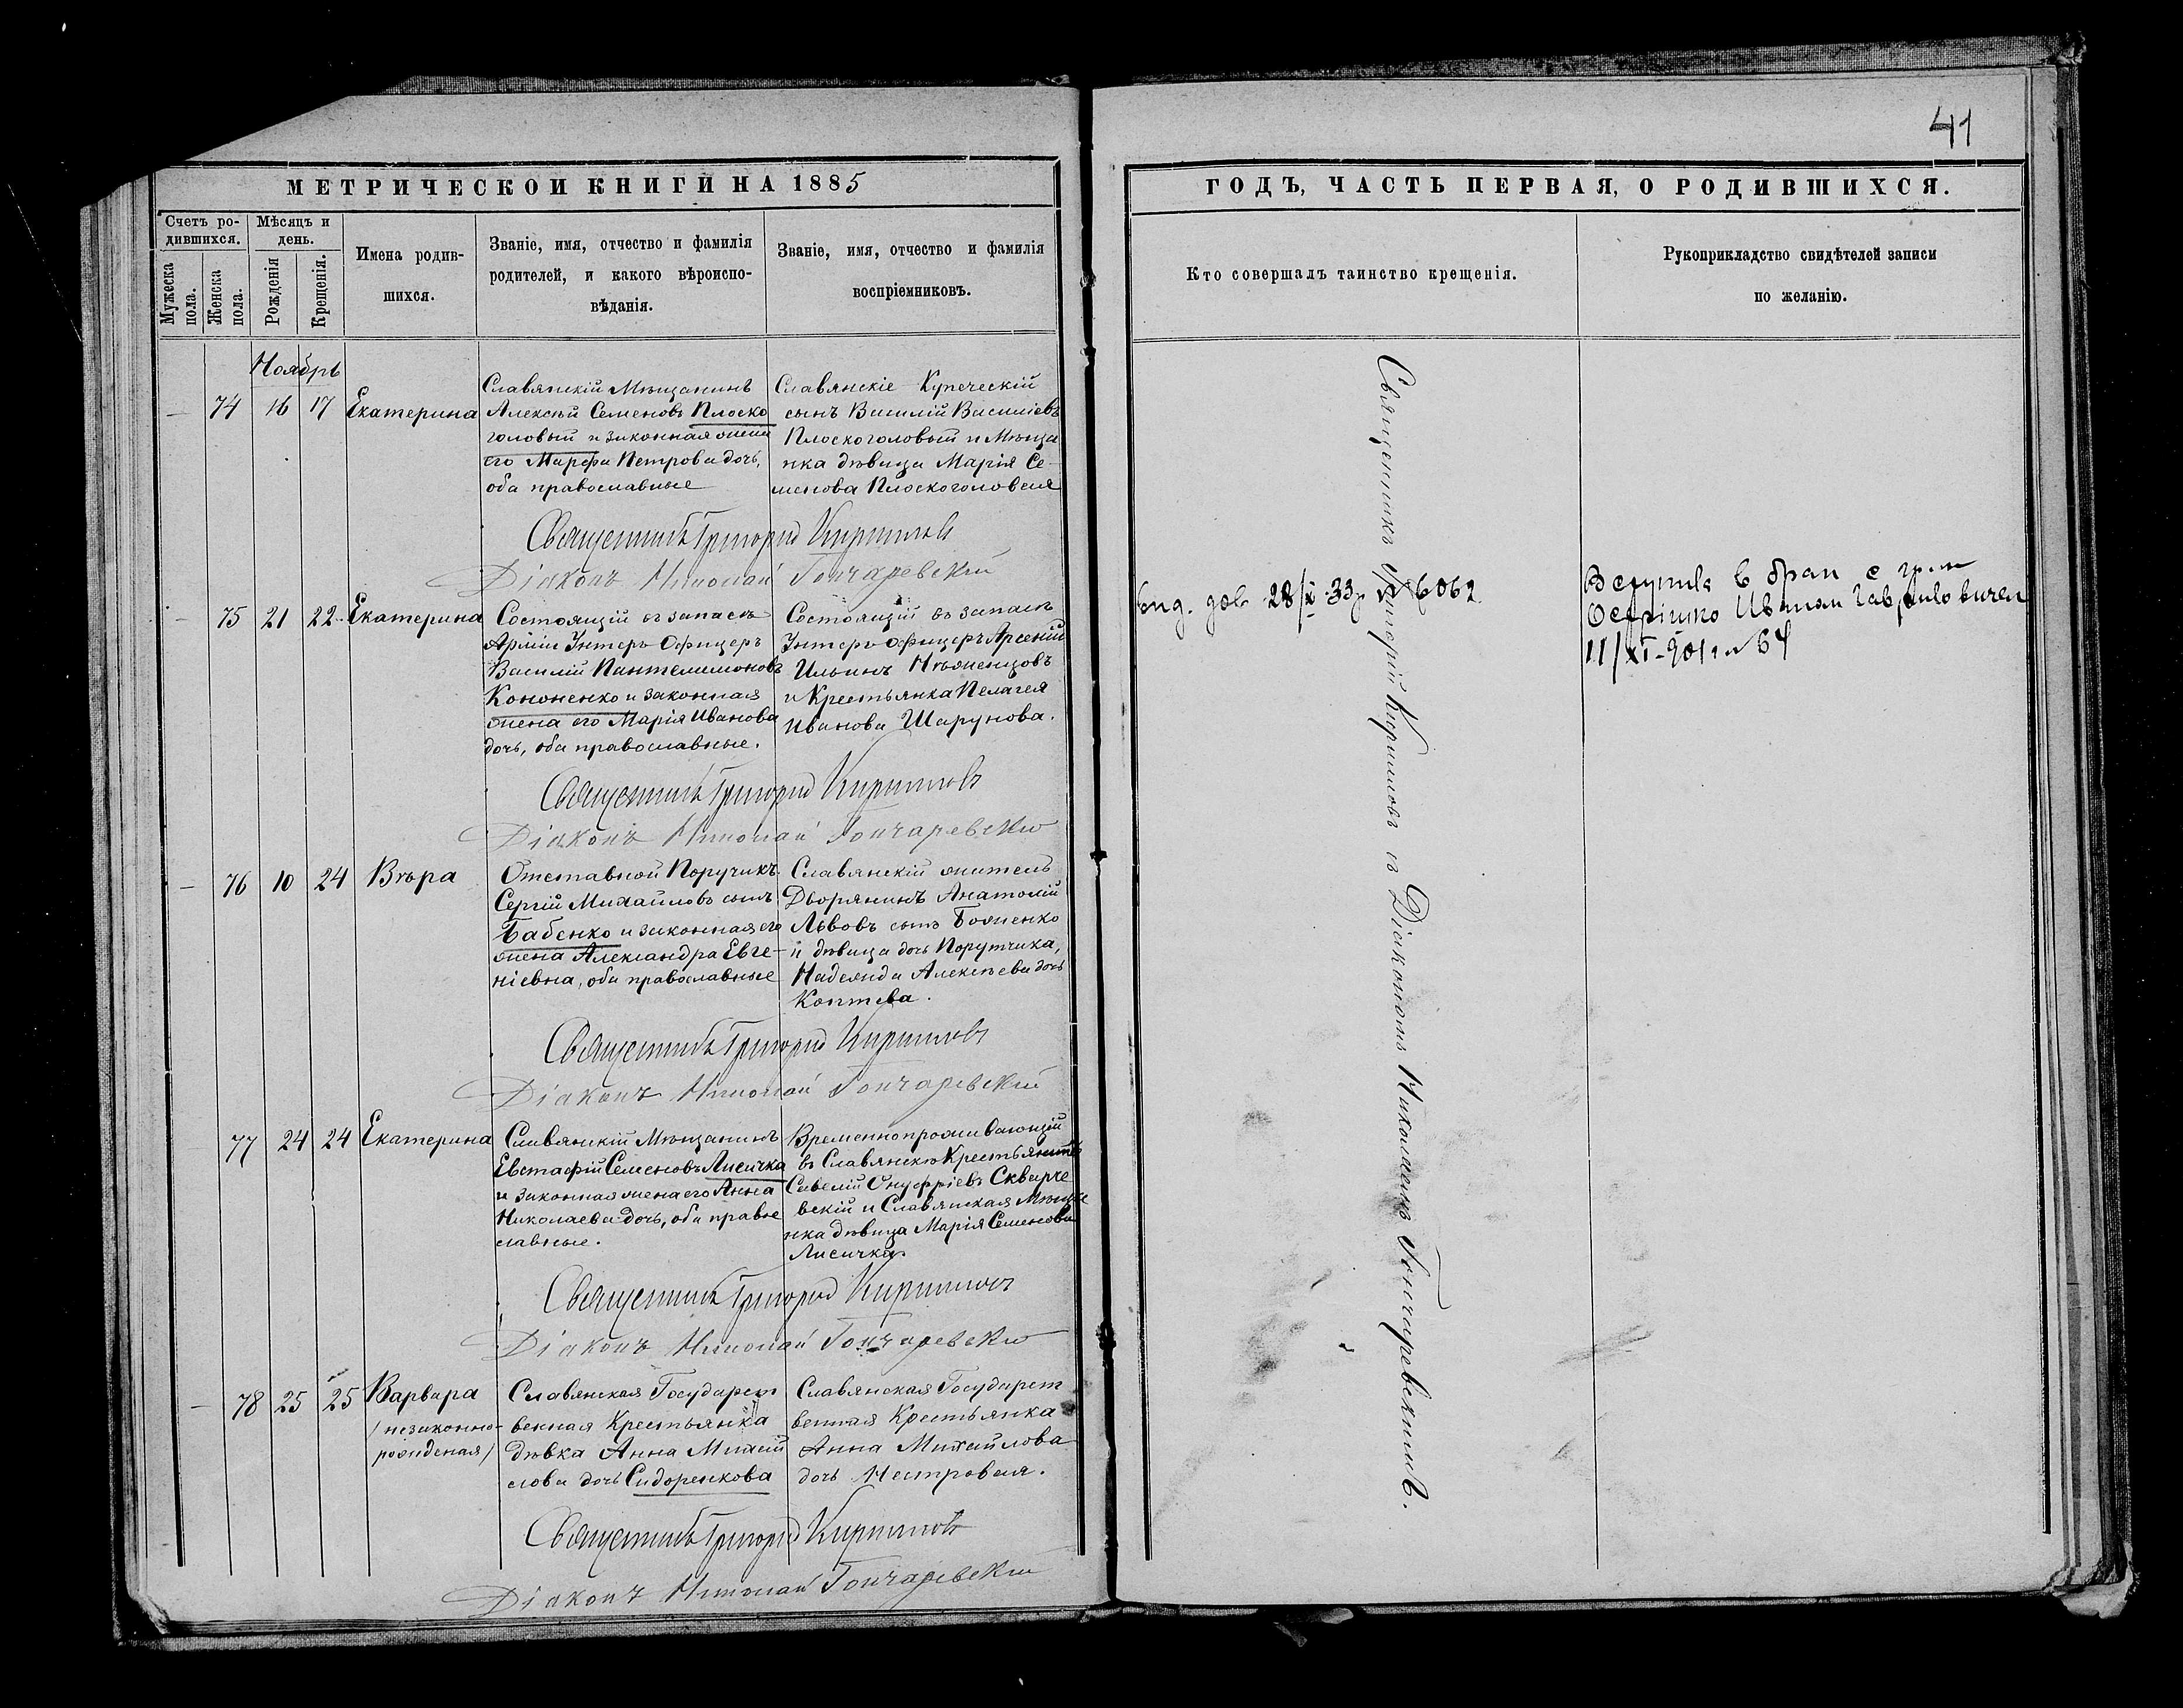 41
МЕТРИЧЕСКОЙ КНИГИ НА 1885
ГОДЪ, ЧАСТЬ ПЕРВАЯ, О РОДИВШИХСЯ.
Счетъ ро-
дившихся.
Мѣсяцъ и
день.
Мужеска
пола.
Женска
пола.
Рожденія
Крещенія.
Имена родив-
шихся.
Званіе, имя, отчество и фамилія
родителей, и какого вѣроиспо-
вѣданія.
Званіе, имя, отчество и фамилія
воспріемниковъ.
Кто совершалъ таинство крещенія.
Рукоприкладство свидѣтелей записи
по желанію.
Ноябрь
— 74 16 17 Екатерина
Славянскій Мѣщанинъ
Алексѣй Семеновъ Плоско
головый и законная жена
его Марфа Петрова дочь,
оба православные
Славянскіе Купеческій
сынъ Василій Василіевъ
Плоскоголовый и Мѣща
нка дѣвица Марія Се-
менова Плоскоголовая
Священникъ Григорій Кирилловъ
Діаконъ Николай Гончаревскій
— 75 21 22 Екатерина
Состоящій въ запасѣ
Арміи Унтеръ Офицеръ
Василій Пантелимоновъ
Кононенко и законная
жена его Марія Иванова
дочь, оба православные.
Состоящій въ запасѣ
Унтеръ офицеръ Арсеній
Ильинъ
и Крестьянка Пелагея
Иванова Шарунова.
Священникъ Григорій Кирилловъ
Діаконъ Николай Гончаревскій
— 76 10 24 Вѣра
Отставной Поручикъ
Сергій Михайловъ сынъ
Бабенко и законная его
жена Александра Евге-
ніевна, оба православные
Славянскій житель
Дворянинъ Анатолій
Львовъ сынъ Боженко
и дѣвица дочь Порутчика,
Надежда Алексѣева дочь
Коптева.
Священникъ Григорій Кирилловъ
Діаконъ Николай Гончаревскій
77 24 24 Екатерина
Славянскій Мѣщанинъ
Евстафій Семеновъ Лисичка
и законная жена его Анна
Николаева дочь, оба право
славные.
Временнопроживающій
въ Славянскѣ Крестьянинъ
Савелій Онуфріевъ Скварче
вскій и Славянская Мѣща
нка дѣвица Марія Семенова
Лисичка.
Священникъ Григорій Кирилловъ
Діаконъ Николай Гончаревскій
— 78 25 25 Варвара
/незаконно-
рожденая/
Славянская Государст
венная Крестьянка
дѣвка Анна Михай
лова дочь Сидоренкова
Славянская Государст
венная Крестьянка
Анна Михайлова
дочь Нестровая.
Священникъ Григорій Кирилловъ
Діаконъ Николай Гончаревскій
Священникъ Григорій Кирилловъ съ Діакономъ Николаемъ Гончаревскимъ.
выд. дов. 28/X-33г №6062
Вступила в брак с гр-м
Иваном Гавриловичем
11/XI-901г № 64